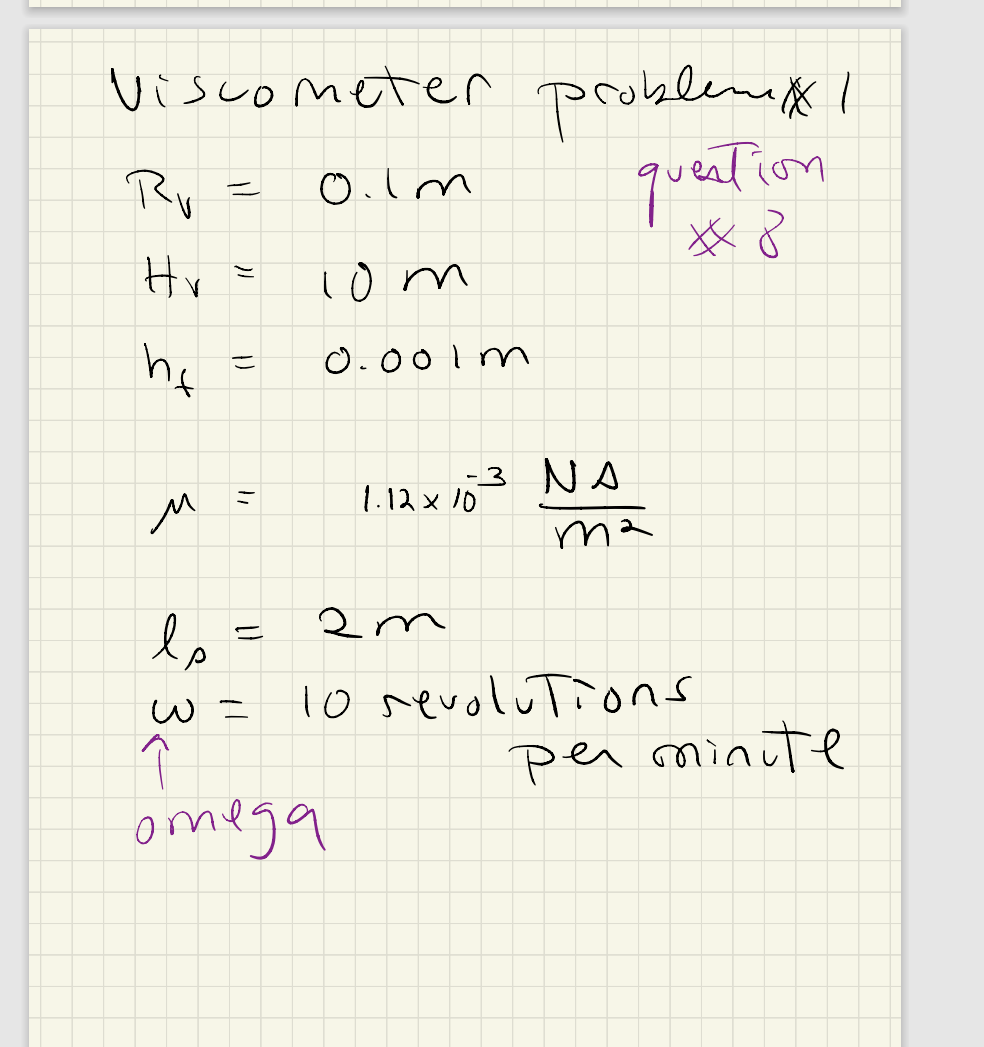 Viscometer problem # 1
question
# 8
Rv = 0.1m
Hv = 10 m
hf = 0.001m
μ = 1.12 x 10⁻³ Ns/m²
ls = 2m
ω = 10 revolutions
per minute
↑
omega